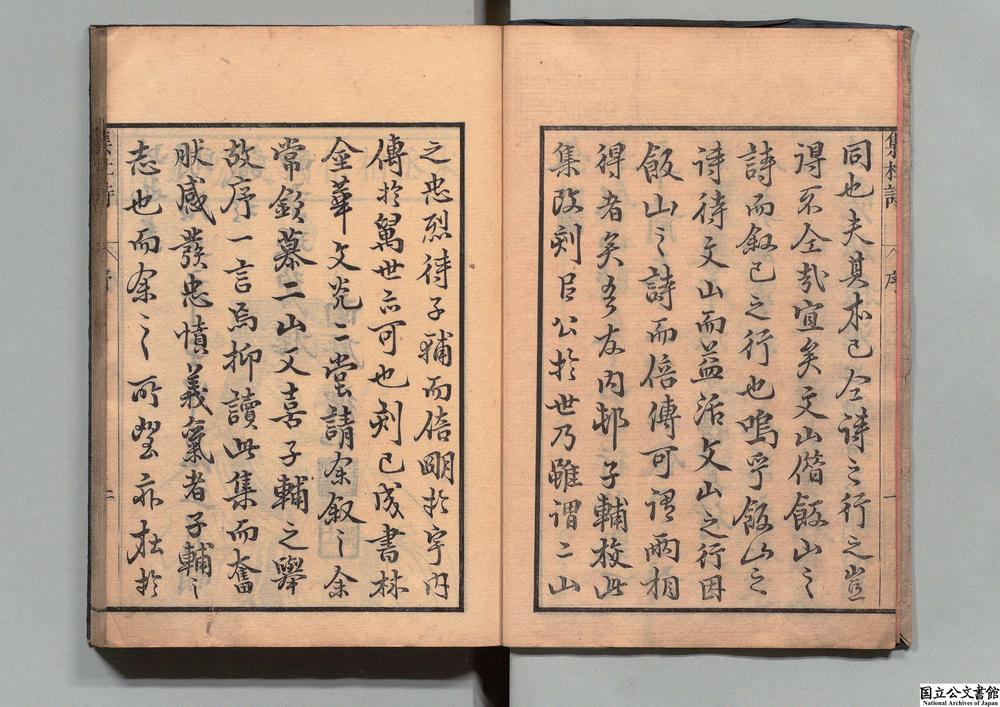 集杜詩
序
一
同也夫其本已仝詩之行之豈
得不仝哉宜矣文山偕飯山之
詩而叙已之行也嗚乎飯山之
詩待文山而益活文山之行因
飯山之詩而倍傳可謂兩相
得者矣吾友内邨子輔校此
集改刻以公於世乃雖謂二山
之忠烈待子輔而倍明於宇内
傳於萬世亦可也刻已成書林
金華文光二堂請余叙之余
常欽慕二山又喜子輔之舉
故序一言焉抑讀此集而奮
然感發忠憤義氣者子輔之
志也而余之所望亦在於
国立公文書館
National Archives of Japan